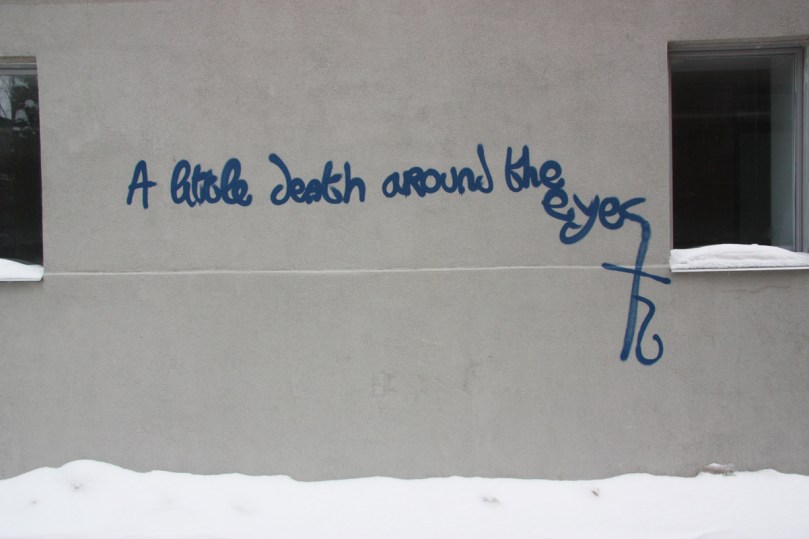 A little death around the
eyes